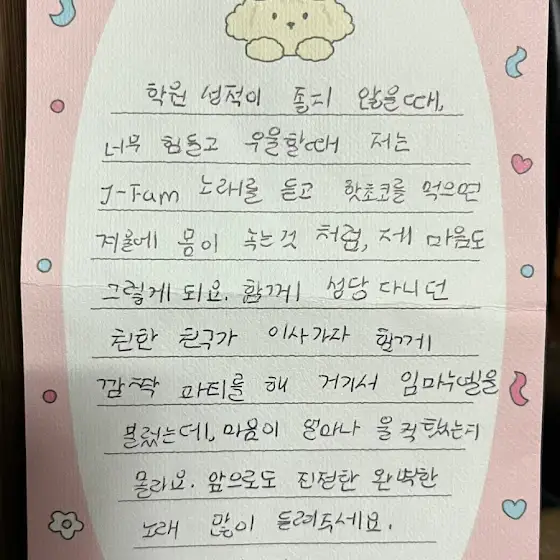 학원 성적이 좋지 않을때,
너무 힘들고 우울할때 저는
J-Fam 노래를 듣고 핫초코를 먹으면
겨울에 몸이 녹는것 처럼, 제 마음도
그렇게 되요. 함께 성당 다니던
친한 친구가 이사가자 함께
깜짝 파티를 해 거기서 임마누엘을
불렀는데, 마음이 얼마나 울적했는지
몰라요. 앞으로도 진정한 완벽한
노래 많이 들려주세요.